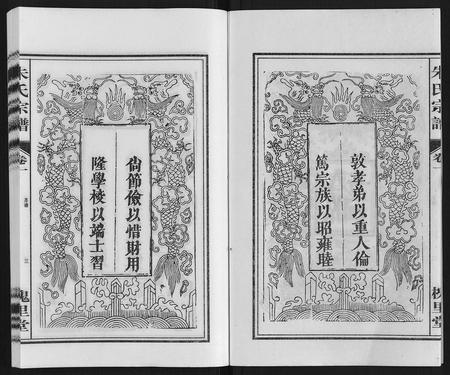 朱氏宗譜
卷一
槐里堂
敦孝弟以重人倫
篤宗族以昭雍睦
尙節儉以惜財用
隆學校以端士習
朱氏宗譜
卷一
三
槐里堂